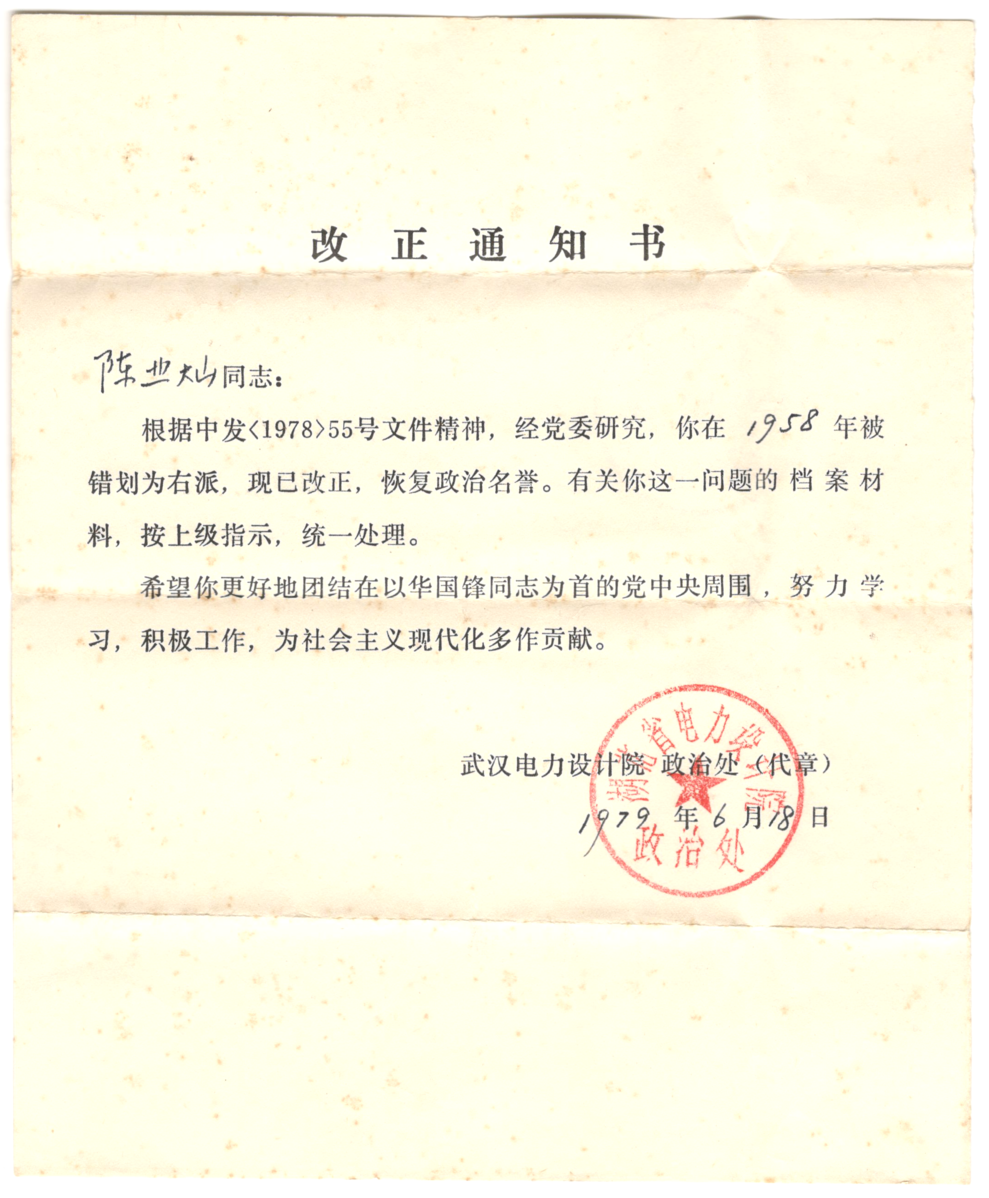 改正通知书
陈业灿同志：
根据中发<1978>55号文件精神，经党委研究，你在 1958 年被
错划为右派，现已改正，恢复政治名誉。有关你这一问题的档案材
料，按上级指示，统一处理。
希望你更好地团结在以华国锋同志为首的党中央周围，努力学
习，积极工作，为社会主义现代化多作贡献。
武汉电力设计院 政治处（代章）
1979 年 6 月 18 日
湖北省电力设计院
政治处